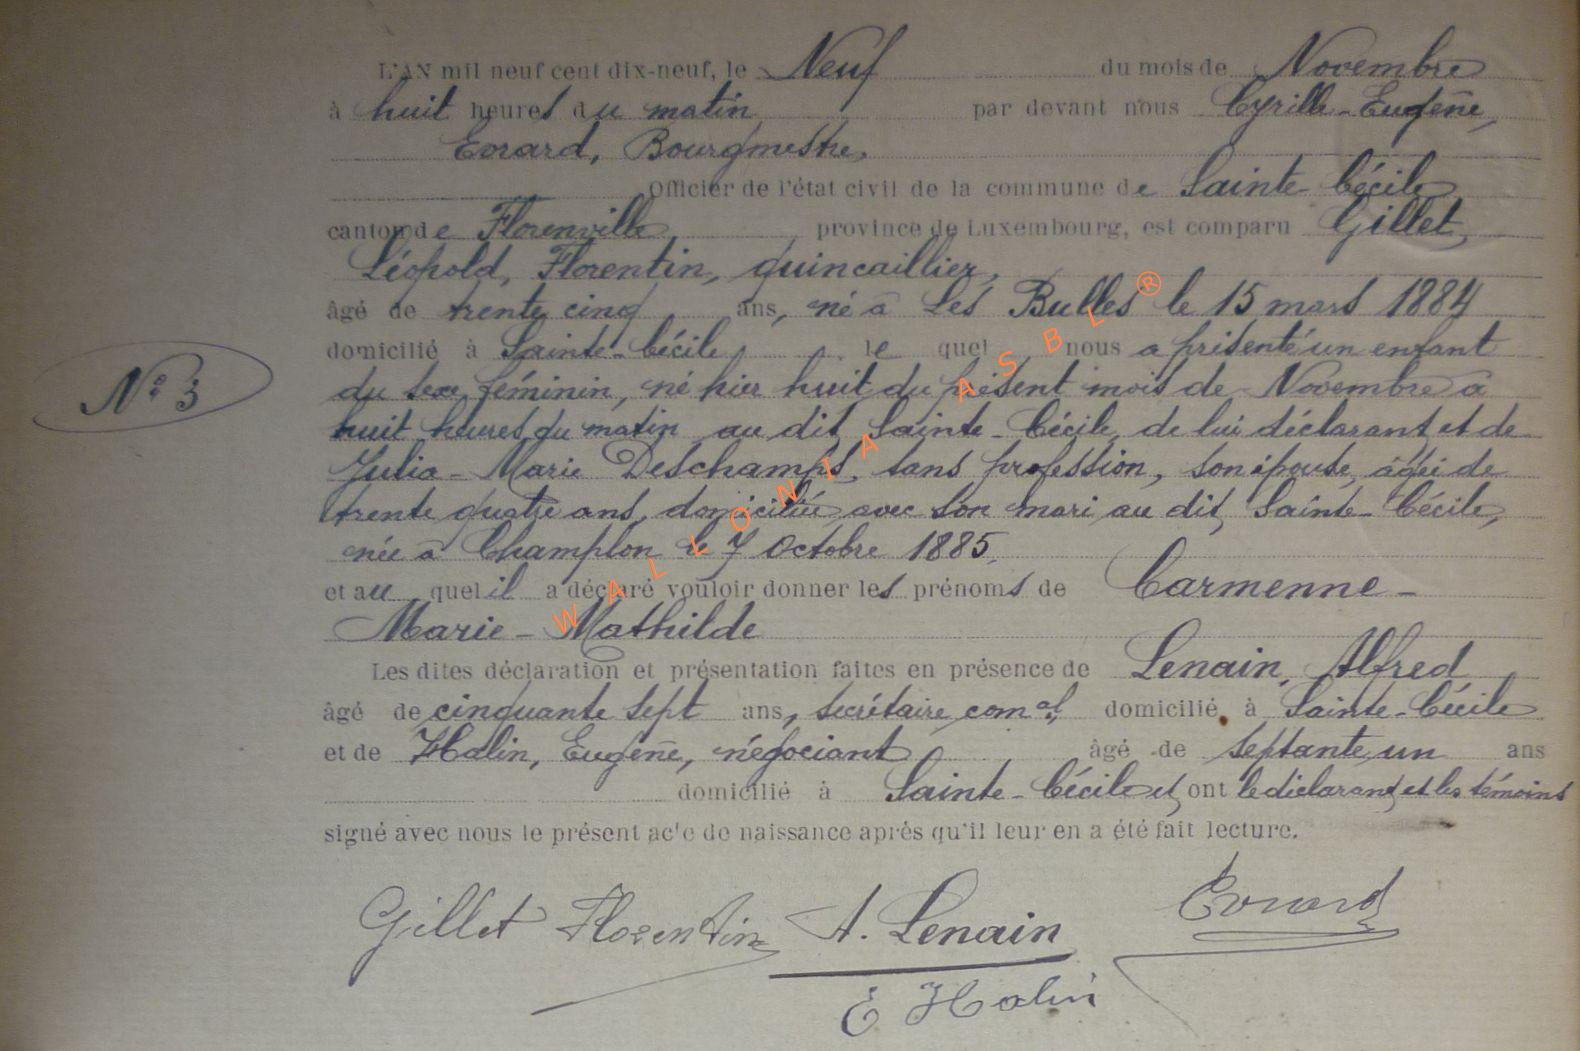 L'AN mil neuf cent dix-neuf, le Neuf du mois de Novembre
à huit heures du matin par devant nous Cyrille-Eugène,
Evrard, Bourgmestre,
Officier de l'état civil de la commune de Sainte-Cécile
canton de Florenville province de Luxembourg, est comparu Gillet,
Léopold, Florentin, quincaillier,
âgé de trente cinq ans, né à Les Bulles le 15 mars 1884
domicilié à Sainte-Cécile, le quel nous a présenté un enfant
du sexe féminin, né hier huit du présent mois de Novembre à
N° 3
huit heures du matin au dit Sainte-Cécile, de lui déclarant et de
Julia-Marie Deschamps, sans profession, son épouse, âgée de
trente quatre ans, domiciliée avec son mari au dit Sainte-Cécile,
née à Champlon le 7 Octobre 1885,
et au quel il a déclaré vouloir donner les prénoms de Carmenne-
Marie-Mathilde
Les dites déclaration et présentation faites en présence de Lenain, Alfred
âgé de cinquante sept ans, secrétaire comal, domicilié à Sainte-Cécile
et de Halin, Eugène, négociant âgé de septante un ans
domicilié à Sainte-Cécile et ont le déclarant et les témoins
signé avec nous le présent acte de naissance après qu'il leur en a été fait lecture.
Gillet Florentin A. Lenain Evrard
E Halin
WALLONIA ASBL ®